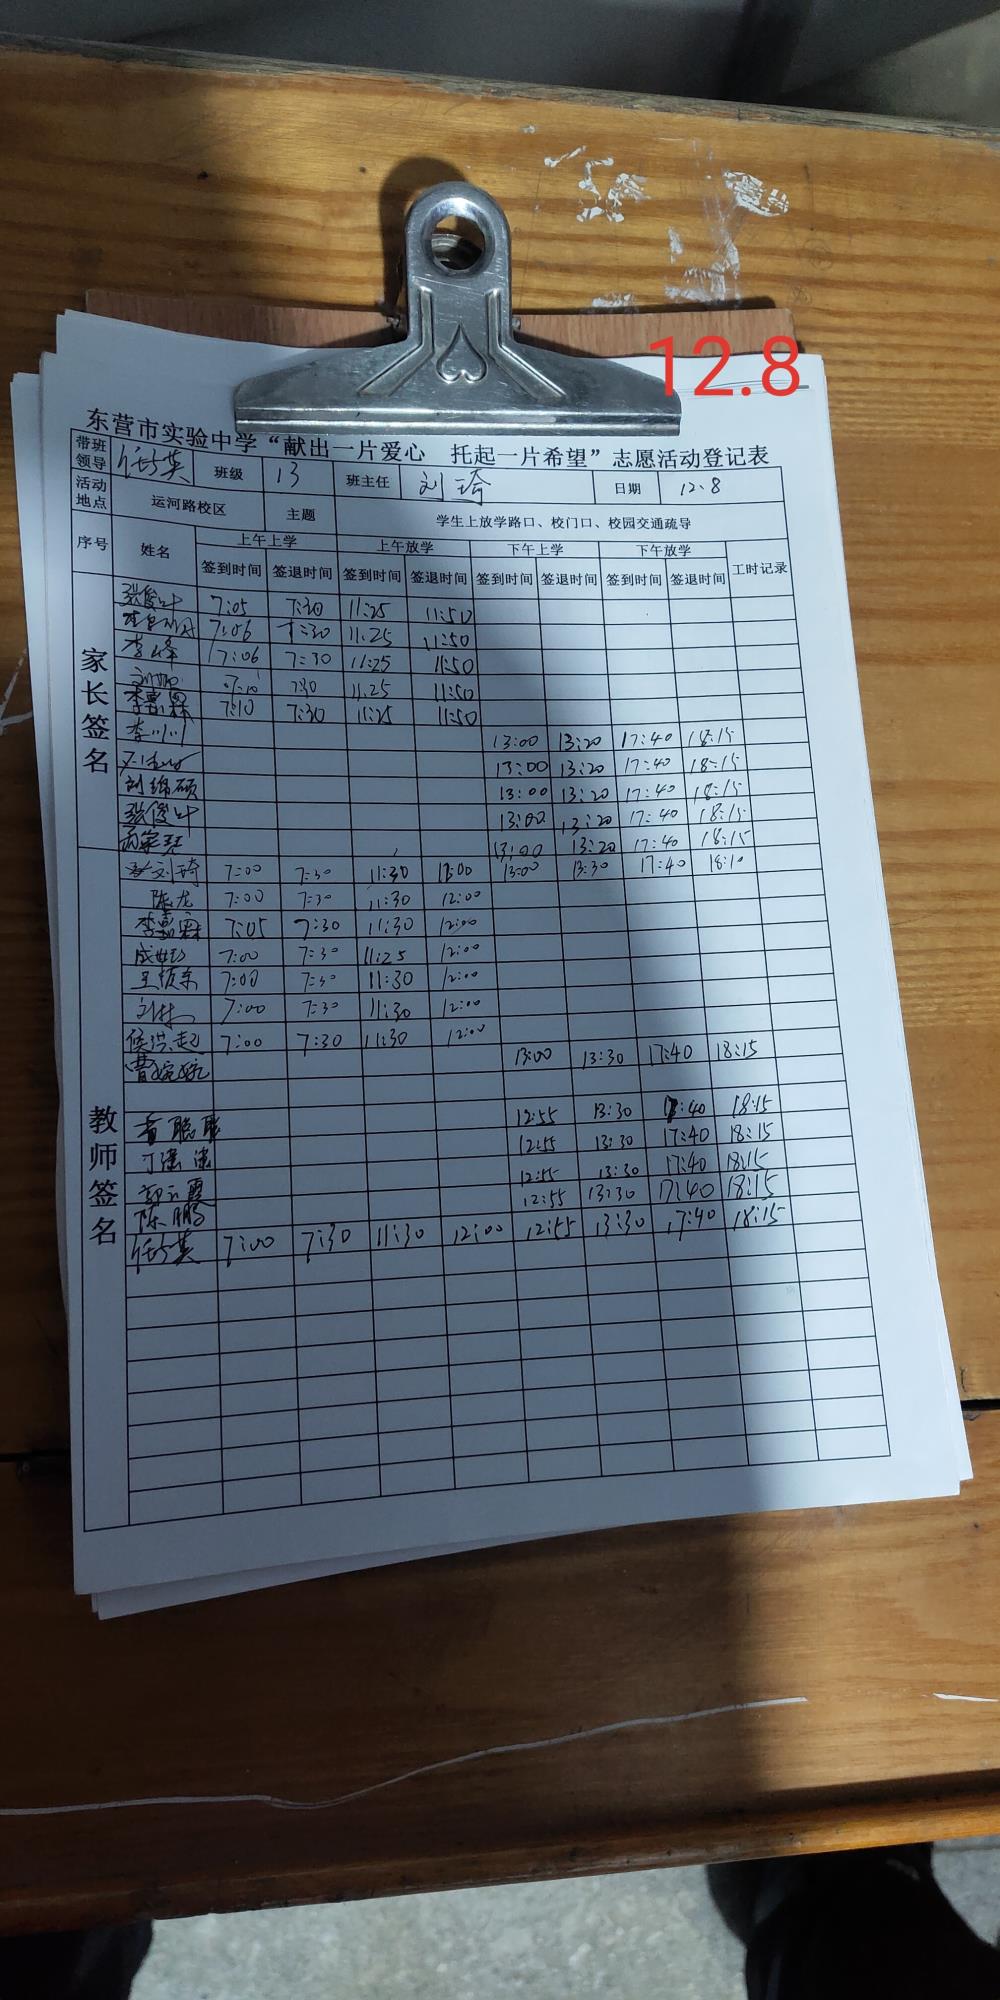 12.8
东营市实验中学“献出一片爱心 托起一片希望”志愿活动登记表
带班领导 班级 13 班主任 刘琦 日期 12.8
活动地点 运河路校区 主题 学生上放学路口、校门口、校园交通疏导
序号 姓名 上午上学 上午放学 下午上学 下午放学 工时记录
签到时间 签退时间 签到时间 签退时间 签到时间 签退时间 签到时间 签退时间
家长签名
张俊叶 7:05 7:30 11:25 11:50
7:06 7:30 11:25 11:50
李峰 7:06 7:30 11:25 11:50
7:10 7:30 11:25 11:50
李嘉霖 7:10 7:30 11:25 11:50
李川川 13:00 13:20 17:40 18:15
13:00 13:20 17:40 18:15
刘绵硕 13:00 13:20 17:40 18:15
张俊叶 13:00 13:20 17:40 18:15
13:00 13:20 17:40 18:15
教师签名
刘琦 7:00 7:30 11:30 12:00 13:00 13:30 17:40 18:10
陈龙 7:00 7:30 11:30 12:00
李嘉霖 7:05 7:30 11:30 12:00
7:00 7:30 11:25 12:00
7:00 7:30 11:30 12:00
7:00 7:30 11:30 12:00
侯洪起 7:00 7:30 11:30 12:00
曹婉婉 13:00 13:30 17:40 18:15
12:55 13:30 17:40 18:15
12:55 13:30 17:40 18:15
12:55 13:30 17:40 18:15
陈鹏 12:55 13:30 17:40 18:15
7:00 7:30 11:30 12:00 12:55 13:30 17:40 18:15